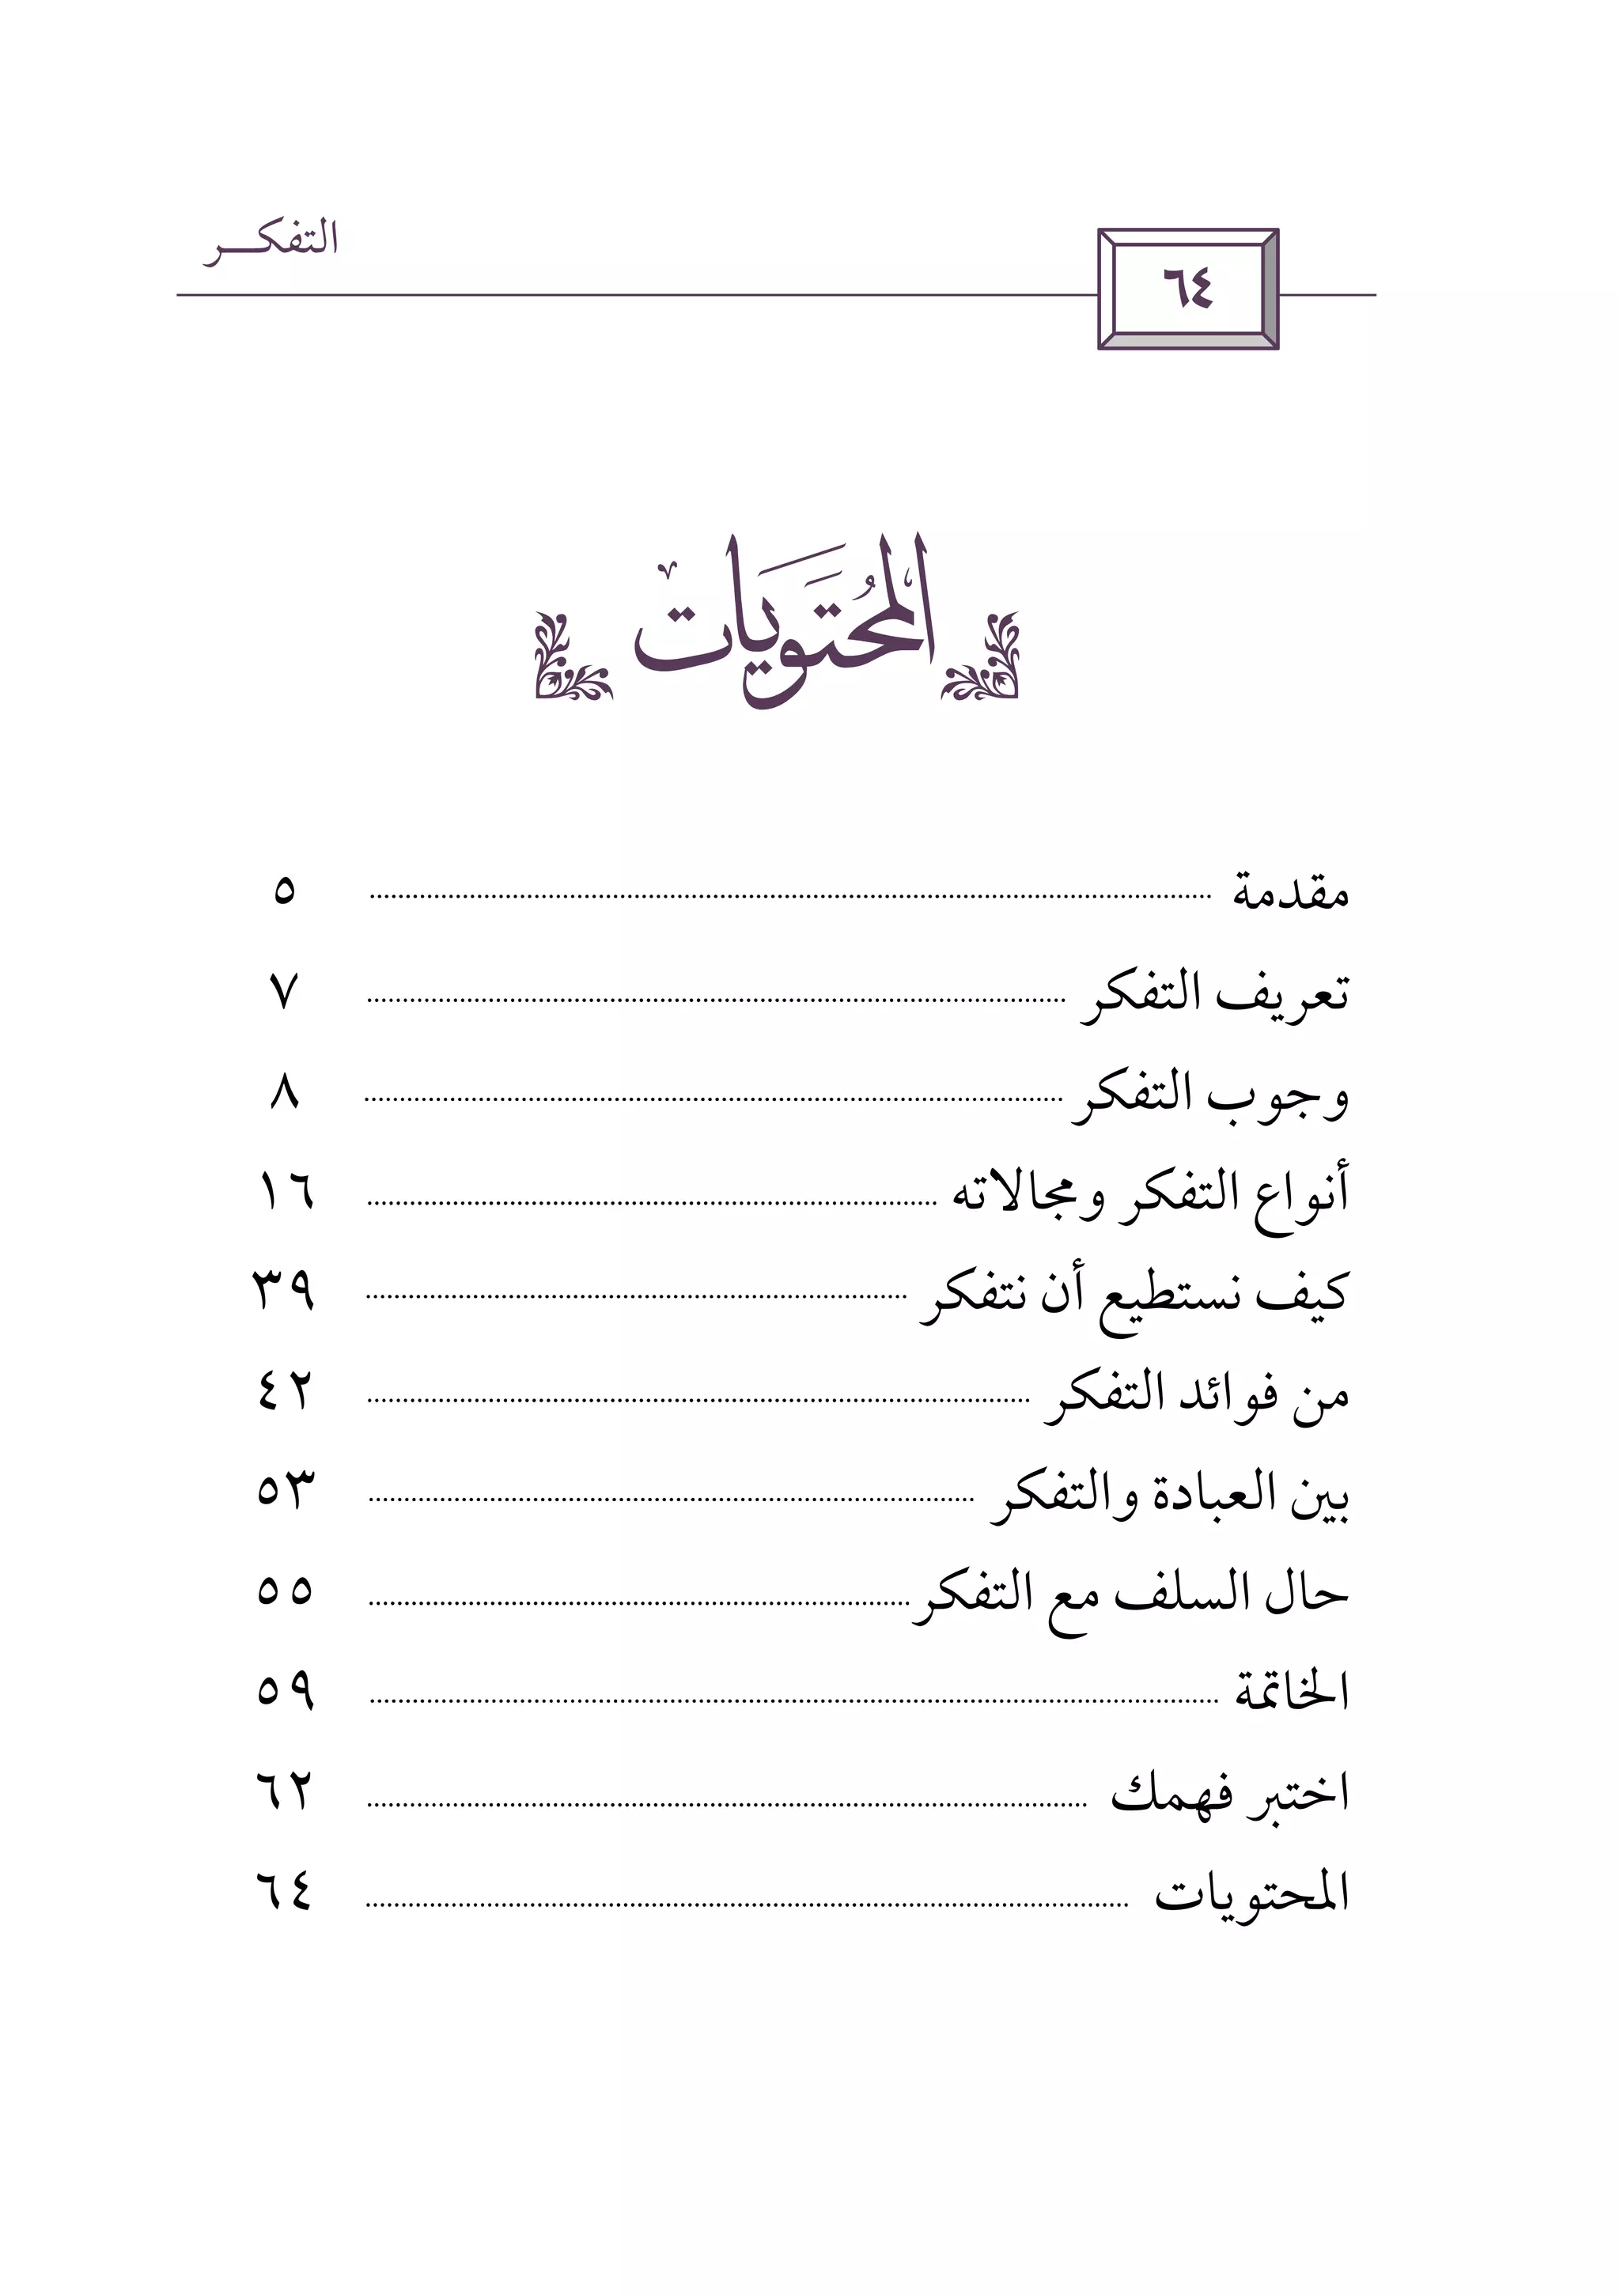 التفكـــر
٦٤
المُحْتَوَيَاتْ
مقدمة ........................................ ٥
تعريف التفكر ........................................ ٧
وجوب التفكر ........................................ ٨
أنواع التفكر ومجالاته ........................................ ١٦
كيف نستطيع أن نتفكر ........................................ ٣٩
من فوائد التفكر ........................................ ٤٢
بين العبادة والتفكر ........................................ ٥٣
حال السلف مع التفكر ........................................ ٥٥
الخاتمة ........................................ ٥٩
اختبر فهمك ........................................ ٦٢
المحتويات ........................................ ٦٤